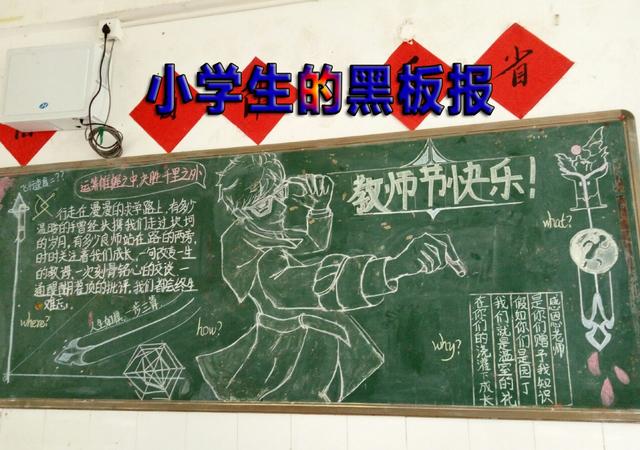 小学生的黑板报
省
运筹帷幄之中 决胜千里之外
教师节快乐!
行走在漫漫的求学路上,有多少
温暖的手曾经扶携我们走过坎坷
的岁月,有多少良师站在路的两旁,
时时关注着我们成长,一句改变一生
的教诲,一次刻骨铭心的交谈,一
通醍醐灌顶的批评,我们都会终生
难忘。
what?
where?
一步三算
how?
why?
感恩老师
是你们赠予我知识
假如你们是园丁
我们就是温室的花
在你们的浇灌下成长